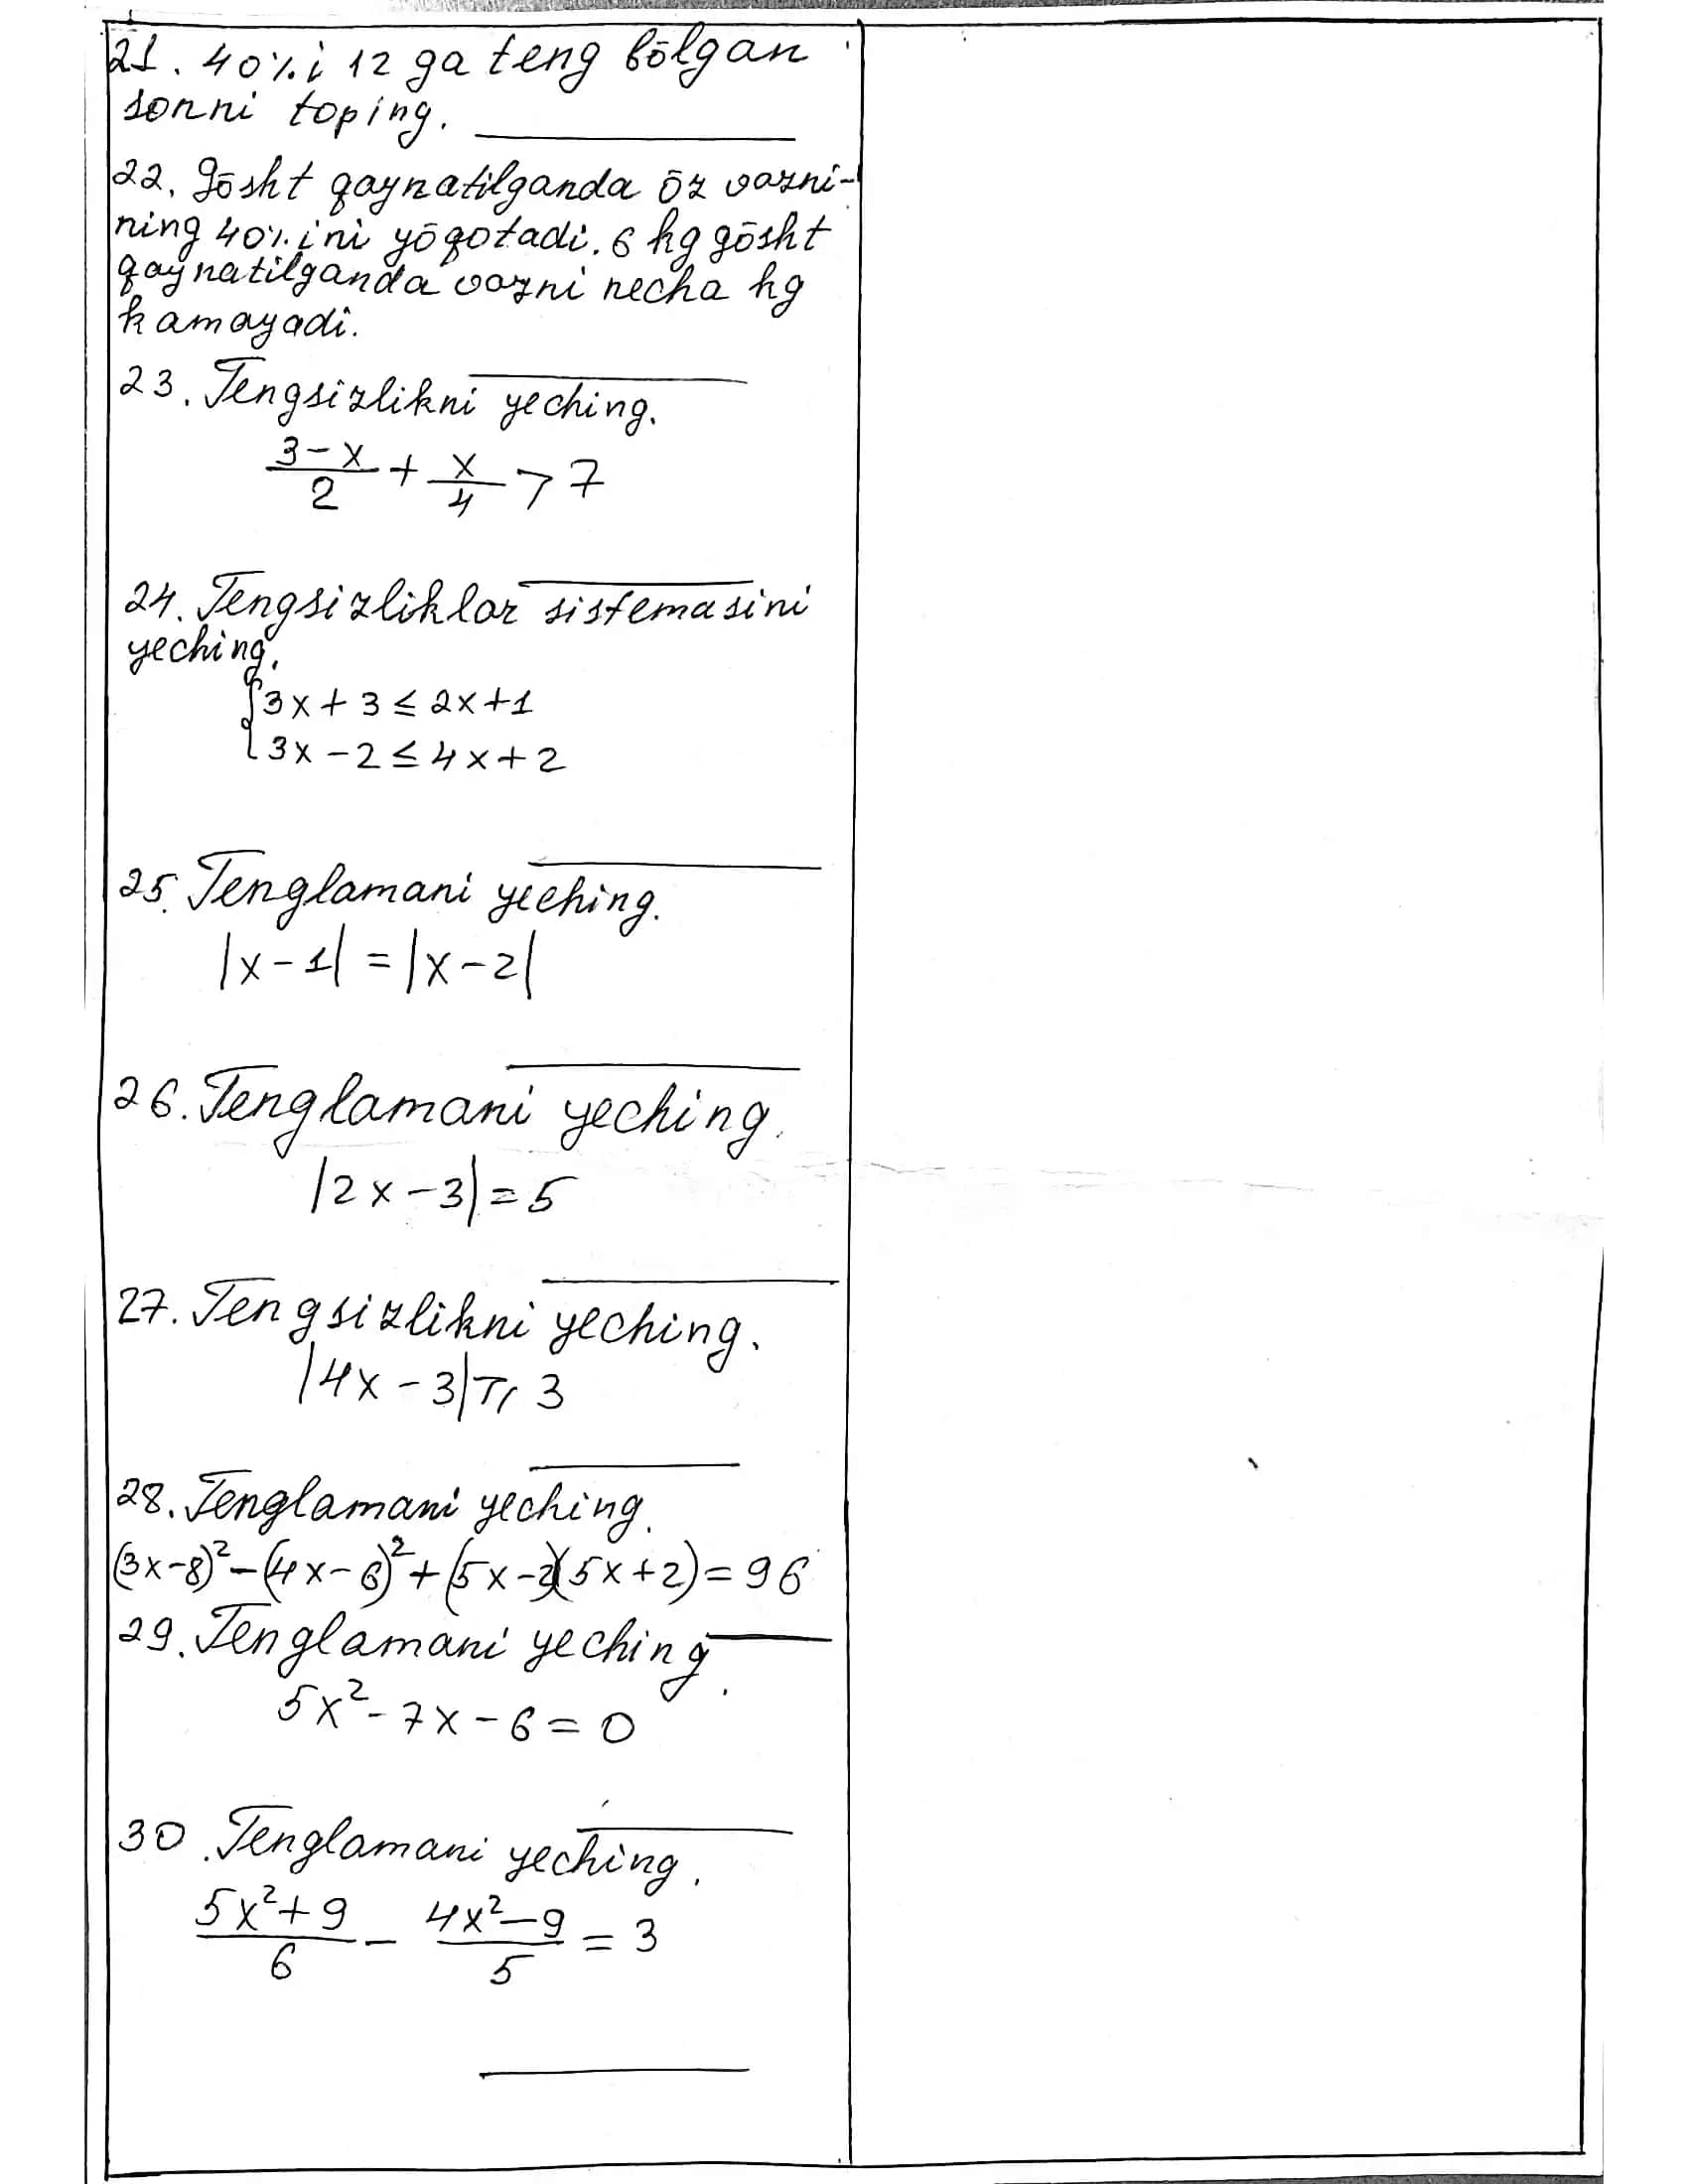 21. 40% i 12 ga teng bōlgan
sonni toping.
22. Gōsht qaynatilganda ōz vazni-
ning 40% ini yōqotadi. 6 kg gōsht
qaynatilganda vazni necha kg
kamayadi.
23. Tengsizlikni yeching.
(3-x)/2 + x/4 > 7
24. Tengsizliklar sistemasini
yeching.
{3x+3 ≤ 2x+1
{3x-2 ≤ 4x+2
25. Tenglamani yeching.
|x-1| = |x-2|
26. Tenglamani yeching.
|2x-3| = 5
27. Tengsizlikni yeching.
|4x-3| ≥ 3
28. Tenglamani yeching.
(3x-8)² - (4x-6)² + (5x-2)(5x+2) = 96
29. Tenglamani yeching.
5x² - 7x - 6 = 0
30. Tenglamani yeching.
(5x²+9)/6 - (4x²-9)/5 = 3